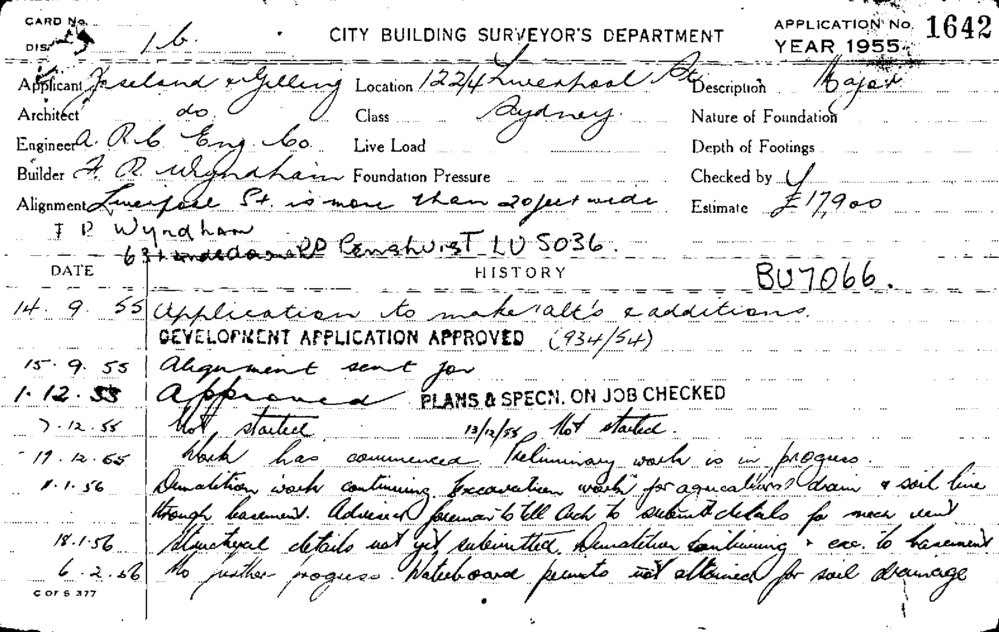 CARD No.
DIS. 1 b. CITY BUILDING SURVEYOR'S DEPARTMENT APPLICATION No. 1642
YEAR 1955
Applicant Joseland & Gilling Location 122/4 Liverpool St Description Major
Architect do. Class Sydney. Nature of Foundation
Engineer A. R. C. Eng. Co. Live Load Depth of Footings
Builder F. R. Wyndham Foundation Pressure Checked by
Alignment Liverpool St. is more than 20 feet wide Estimate £17,900
F R Wyndham
63 RD Penshurst LU 5036.
DATE HISTORY BU7066.
14. 9. 55 Application to make alt's & additions.
DEVELOPMENT APPLICATION APPROVED (934/54)
15. 9. 55 Alignment sent for
1. 12. 55 Approved PLANS & SPECN. ON JOB CHECKED
7. 12. 55 Not started. 13/12/55 Not started.
19. 12. 55 Work has commenced. Preliminary work is in progress.
1. 56 Demolition work continuing. Excavation work for drain & soil line
through basement. Advised foreman to tell Arch to submit details for mech vent
18. 1. 56 Structural details not yet submitted. Demolition continuing & exc. to basement
6. 2. 56 No further progress. Waterboard permits not obtained for soil drainage
C OF S 377